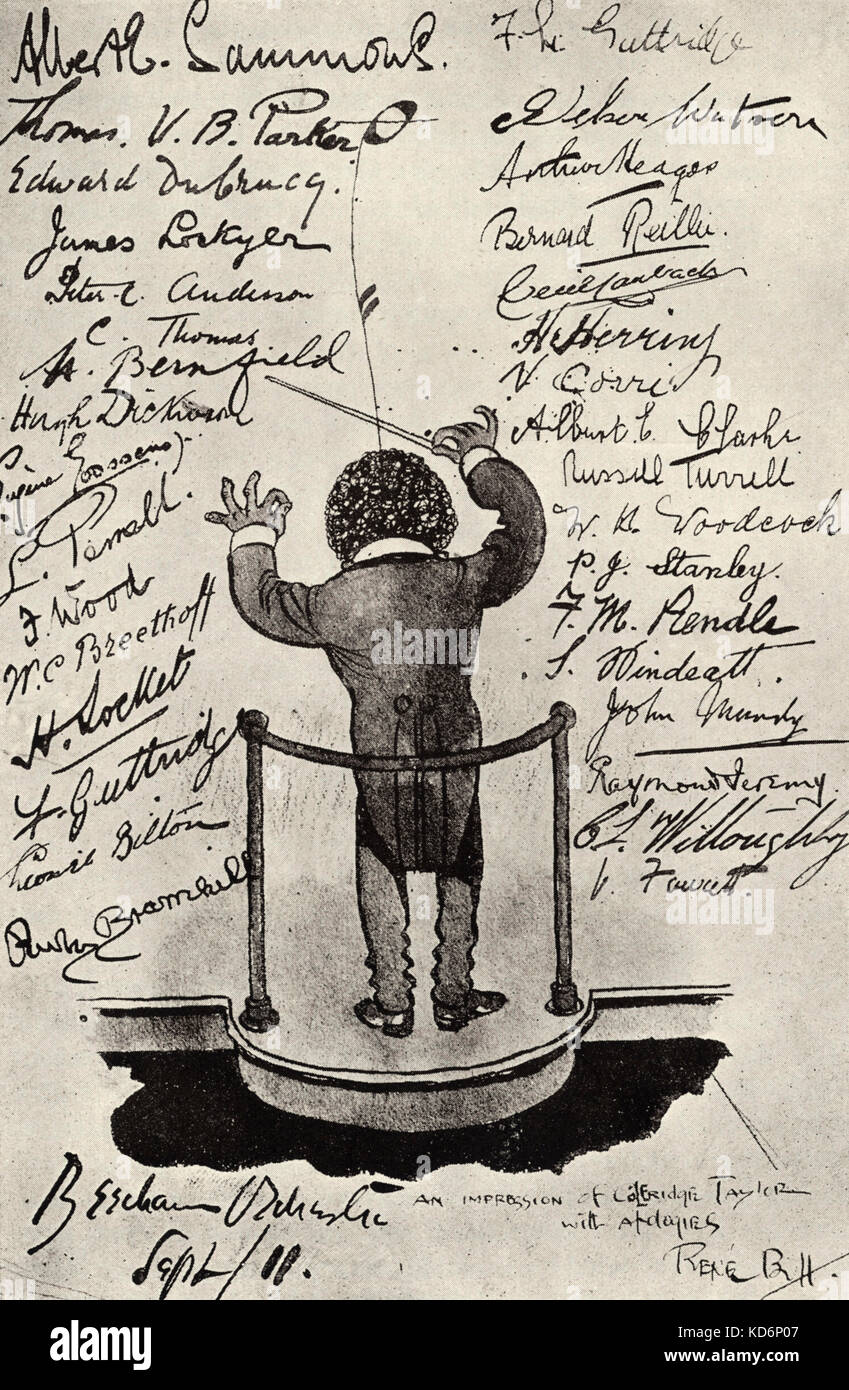 Albert E. Sammons.
Thomas. V. B. Parker
Edward Dubrucq.
James Lockyer
Peter C. Anderson
C. Thomas
H. Bernfield
Hugh Dickason
Eugène Goossens Jr.
L. Perrell.
F. Wood
W. C Breethoff
H. Locket
F. Guttridge
Leonie Bilton
Bramhill
F. W. Guttridge
Nelson Watson
Arthur Heages
Bernard Reillie.
Cecil
H. Herring
V. Corri.
Albert E. Clarke
Russell Turrell
W. H. Woodcock
P. J. Stanley.
F. M. Rendle
S. Windeatt.
John Mundy
Raymond Jeremy.
C L. Willoughby
Fawcett.
Beecham Orchestra
Sept/11.
AN IMPRESSION of COLERIDGE TAYLOR
with APOLOGIES
RENÉ BULL.
alamy stock photo
alamy
Image ID: KD6P07
www.alamy.com